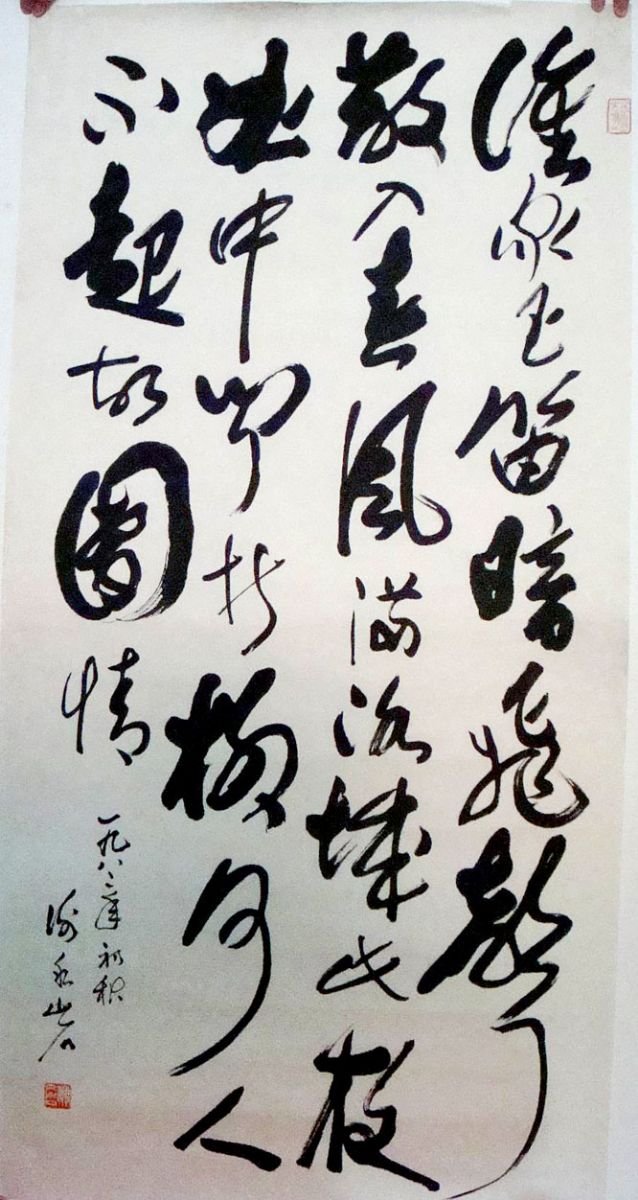 誰家玉笛暗飛聲
散入春風滿洛城此夜
曲中聞折柳何人
不起故園情
一九八二年初秋